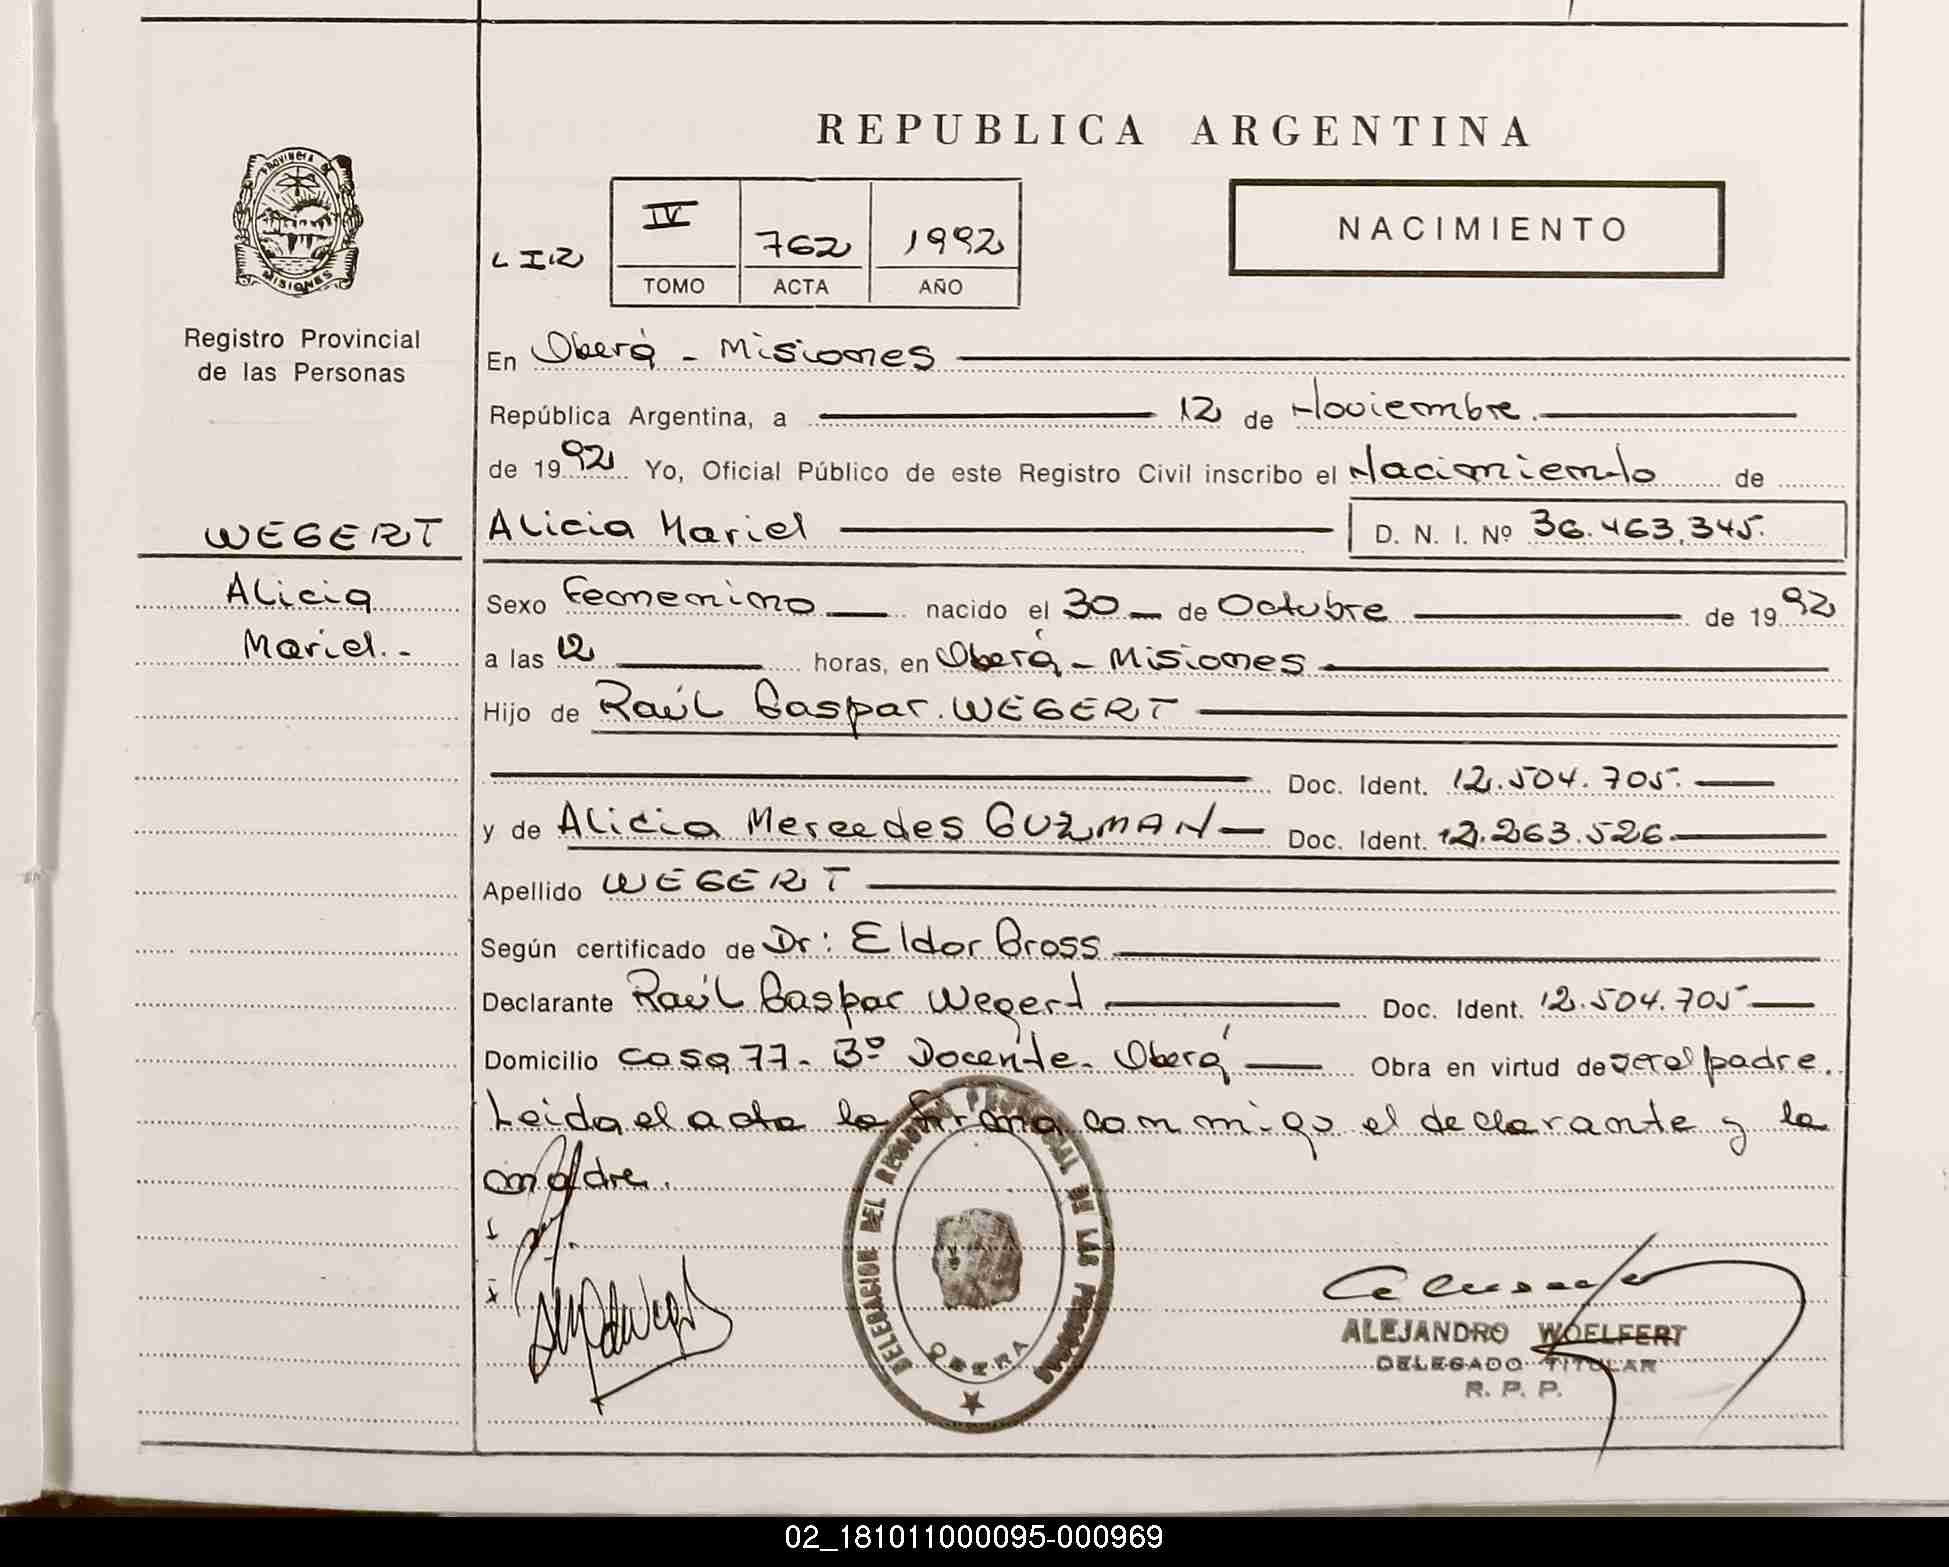 REPUBLICA ARGENTINA
PROVINCIA DE
MISIONES
Registro Provincial
de las Personas
NACIMIENTO
IV 762 1992
TOMO ACTA AÑO
En Oberá - Misiones
República Argentina, a 12 de Noviembre.
de 1992 Yo, Oficial Público de este Registro Civil inscribo el Nacimiento de
WEGERT
Alicia
Mariel.-
Alicia Mariel D. N. I. Nº 36.463.345.
Sexo Femenino nacido el 30 de Octubre de 1992
a las 12 horas, en Oberá - Misiones
Hijo de Raúl Gaspar. WEGERT
Doc. Ident. 12.504.705.
y de Alicia Mercedes GUZMAN Doc. Ident. 12.263.526
Apellido WEGERT
Según certificado de Dr: Eldor Gross
Declarante Raúl Gaspar Wegert Doc. Ident. 12.504.705
Domicilio casa 77 - Bº Docente - Oberá Obra en virtud de ser el padre.
Leida el acta la firma con migo el declarante y la
madre.
DELEGACION DEL REGISTRO PROVINCIAL DE LAS PERSONAS
OBERA
ALEJANDRO WOELFERT
DELEGADO TITULAR
R. P. P.
02_181011000095-000969